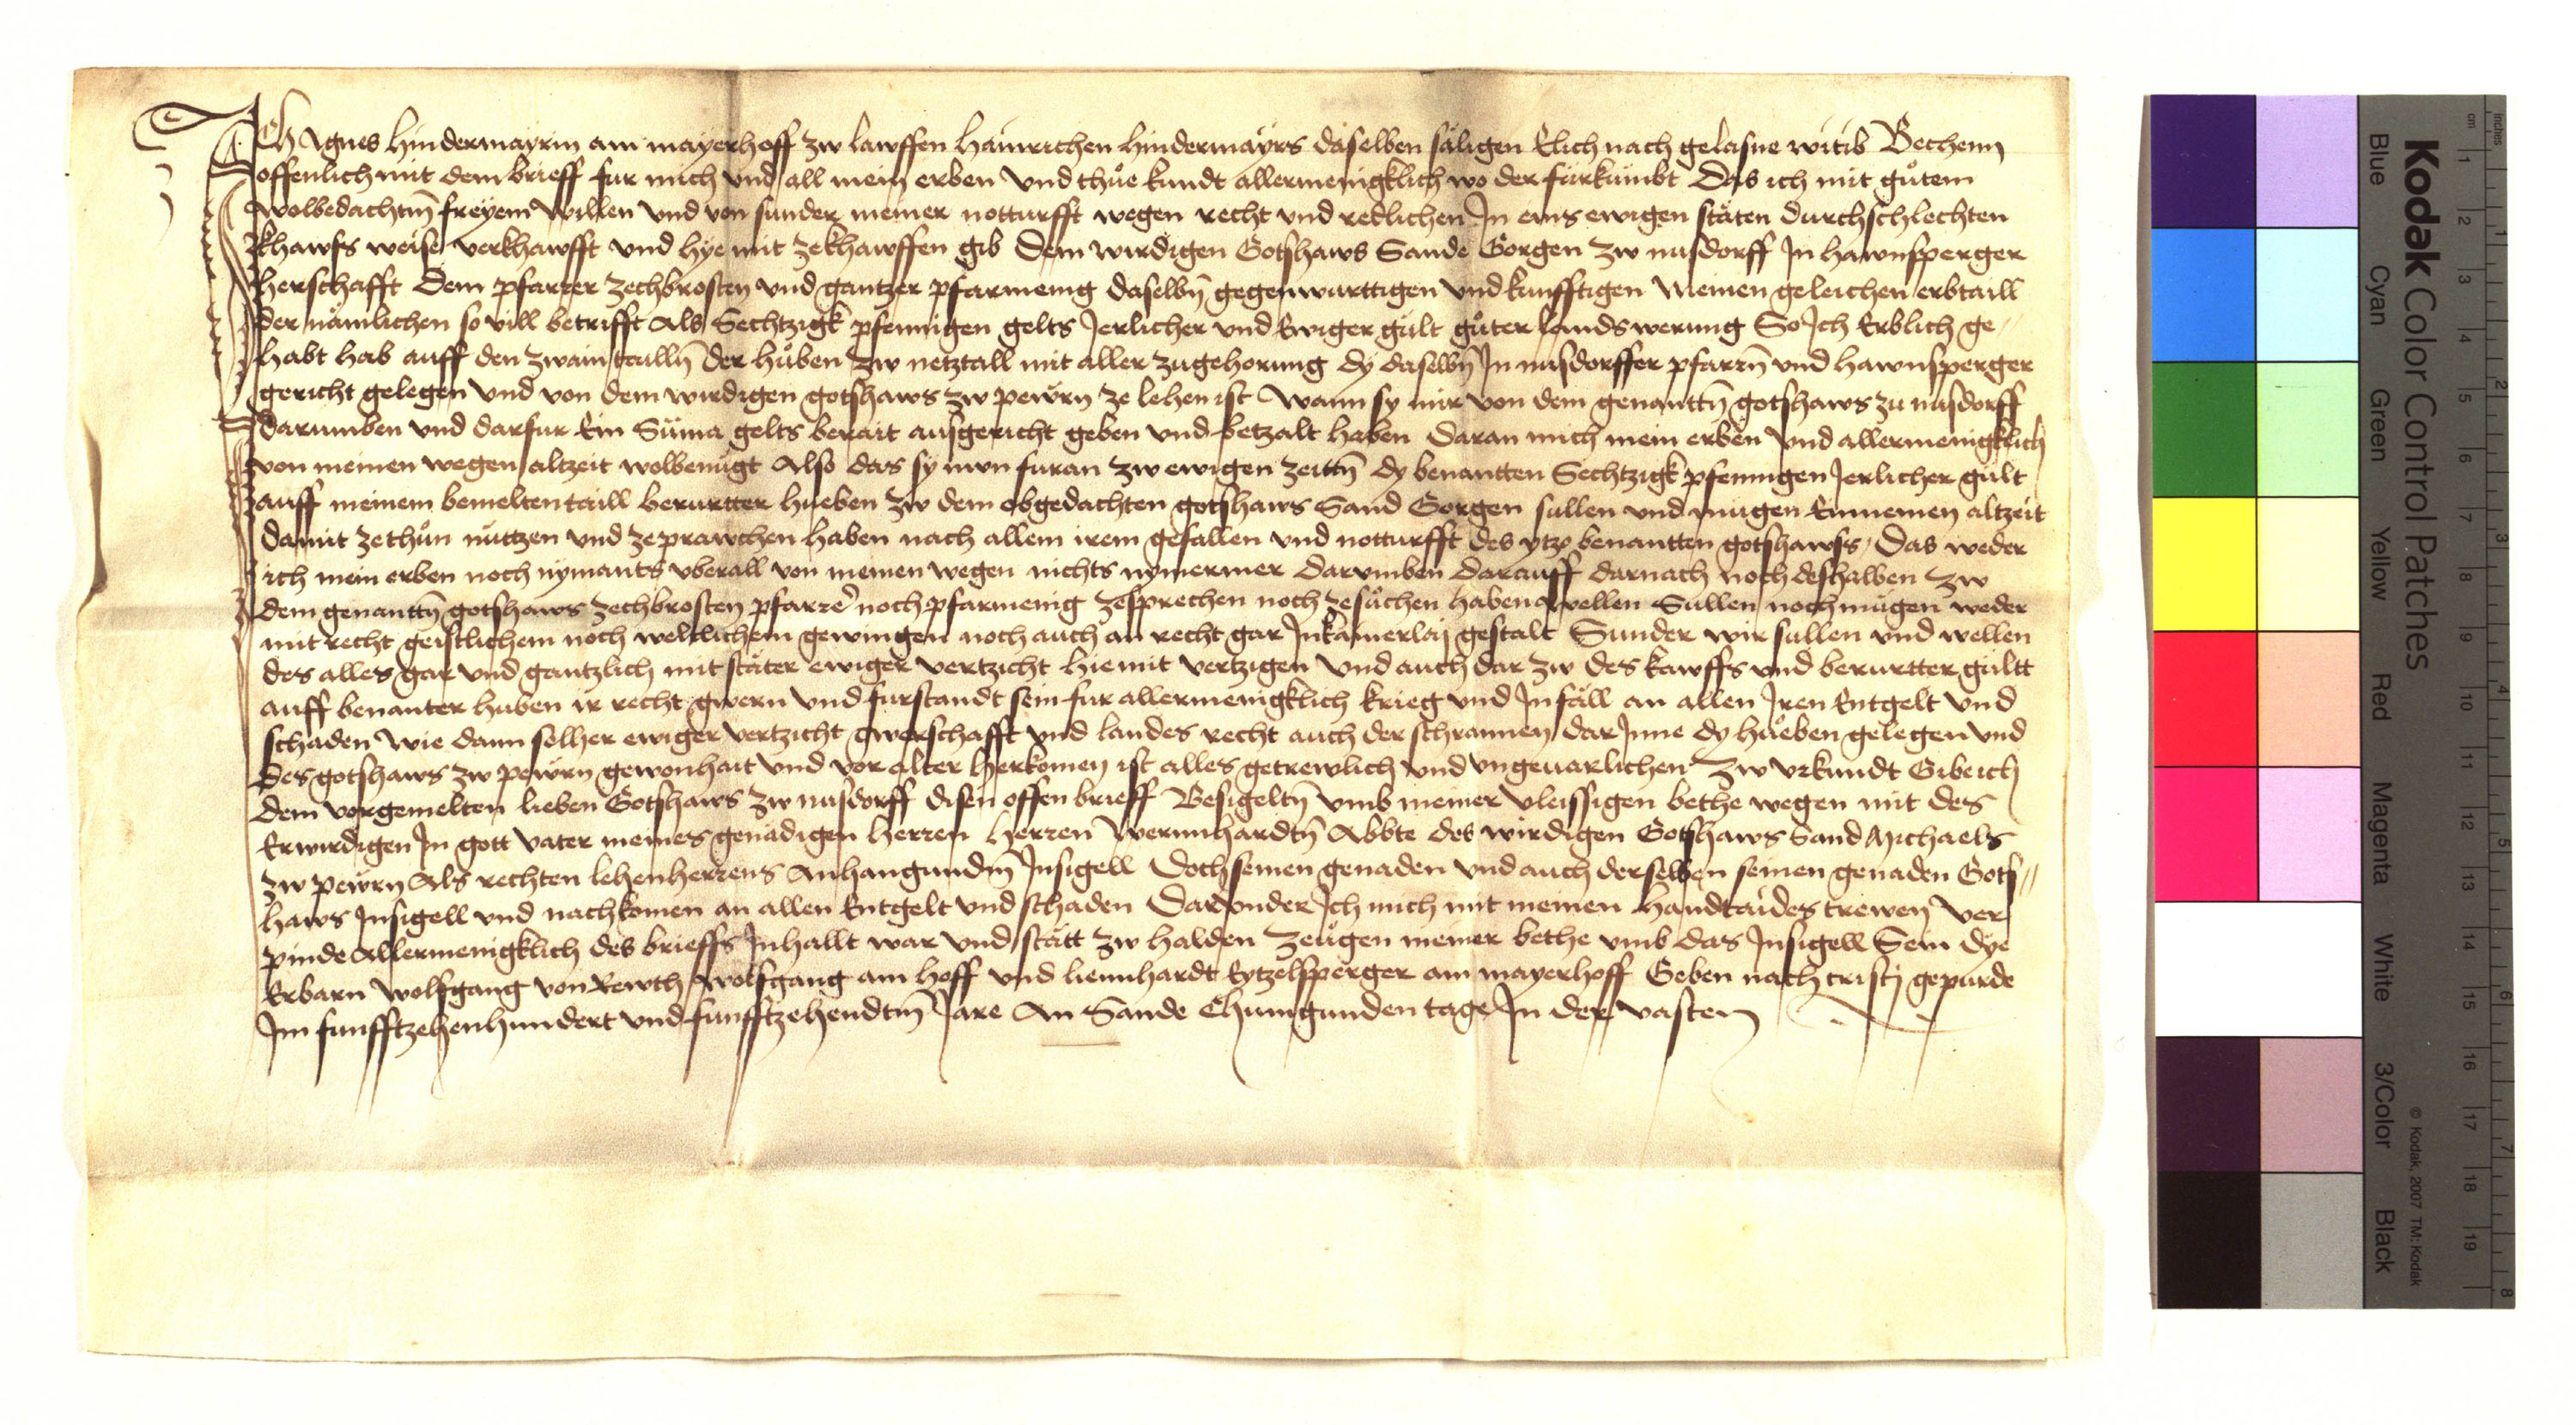 Ich Agnes Hindermayrin am mayerhoff zw lawffen Hainrichen Hindermayrs daselben säligen Elich nach gelasne witib Bechenn
offenlich mit dem brieff fur mich vnd all mein erben vnd thue kundt allermenigklich wo der furkumbt Das ich mit gutem
wolbedachtn freyem willen vnd von sunder meiner notturfft wegen recht vnd redlichen In eins ewigen stäten durchschlechten
khawfs weise verkhawfft vnd hye mit zekhawffen gib Dem wirdigen Gotshaws Sande Gorgen zw nusdorff In hawnsperger
herschafft Dem pfarrer zechbrosten vnd gantzer pfarmenig daselbn gegenwurttigen vnd kunfftigen Meinen geleichen erbtaill
der nämlichen so vill betrifft Als Sechtzigk pfennigen gelts Jerlicher vnd Ewiger gult guter landswerung So Ich Erblich ge
habt hab auff den zwain tailln der huben zw netztall mit aller zugehorung dy daselbn In nusdorffer pfarrn vnd hawnsperger
gericht gelegen vnd von dem wirdigen gotshaws zw pewrn ze lehen ist Wann sy mir von dem genanttn gotshaws zu nusdorff
darumben vnd darfur Ein Suma gelts berait ausgericht geben vnd betzalt haben Daran mich mein erben vnd allermenigklich
von meinen wegen altzeit wolbenugt Also das sy nun furan zw ewigen zeittn dy benantten Sechtzigk pfennigen Jerlicher gult
auff meinem bemelten taill berurtter hueben zw dem obgedachten gotshaws Sand Gorgen sullen vnd mugen Einnemen altzeit
damit ze thun nuttzen vnd ze prawchen haben nach allem irem gefallen vnd notturfft des ytzo benantten gotshawss Das weder
ich mein erben noch nymants vberall von meinen wegen nichts nymermer Darvmben Darauff darnach noch deshalben zw
dem genanttn gotshaws zechbrosten pfarrer noch pfarmenig zesprechen noch zesuchen haben wellen Sullen noch mugen weder
mit recht geistlichem noch weltlichem gewingen noch auch an recht gar In kainerlaj gestalt Sunder wir sullen vnd wellen
des alles gar vnd gantzlich mit stäter ewiger vertzicht hiemit vertzigen Vnd auch dar zw des kawffs vnd berurtter gultt
auff benanter huben ir recht gwern vnd furstandt sein fur allermenigklich krieg vnd Infäll an allen Iren Entgelt vnd
schaden wie dann solher ewiger vertzicht gwerschafft vnd landes recht auch der schrannen dar Inne dy hueben gelegen vnd
des gotshaws zw pewrn gewonhait vnd vor alter herkomen ist alles getrewlich vnd vngeuarlichen Zw vrkundt Gib ich
dem vorgemelten lieben Gotshaws zw nusdorff disen offen brieff Besigeltn vmb meiner vleissigen bethe wegen mit des
Erwirdigen In gott vater meines genädigen herren Herren Wernnhardtn Abbte des wirdigen Gotshaws Sand Michaels
zw pewrn Als rechten lehenherrens Anhangunndm Insigell Doch seinen genaden vnd auch derselben seinen genaden Gots
haws Insigell vnd nachkomen an allen Entgelt vnd schaden Darvnder Ich mich mit meinen Handtaides trewen Ver
pinde Allermenigklich des brieffs Inhallt war vnd stätt zw halden Zeugen meiner bethe vmb das Insigell Sein dye
Erbarn Wolfgang von Rewth Wolfgang am Hoff vnd liennhardt Eytzelsperger am mayerhoff Geben nach cristj gepurde
Im funfftzehenhundert vnd funfftzehendtn Jare An Sande Chunigunden tage In der vasten
Kodak Color Control Patches
Blue Cyan Green Yellow Red Magenta White 3/Color Black
© Kodak, 2007 TM: Kodak
inches 1 2 3 4 5 6 7 8
cm 1 2 3 4 5 6 7 8 9 10 11 12 13 14 15 16 17 18 19